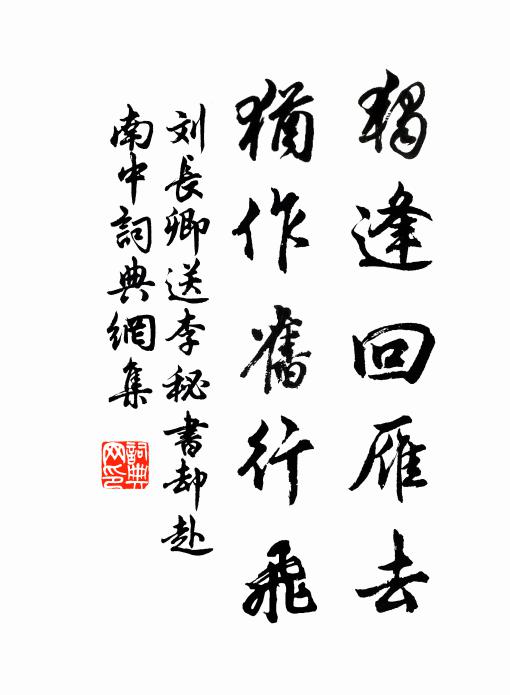 獨逢回雁去
猶作舊行飛
刘長卿送李秘書却赴
南中詞典網集
詞典网印